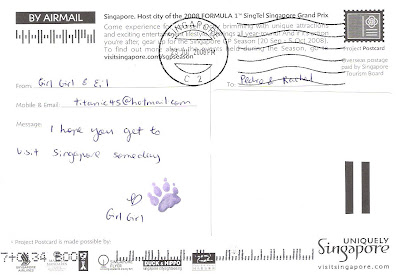 BY AIRMAIL
Singapore. Host city of the 2008 FORMULA 1™ SingTel Singapore Grand Prix
Come experience brimming with unique attractions
and exciting entertainment all year round. And if
you're after, gear up for the Singapore GP Season (20 Sep - 5 Oct 2008).
To find out more held during the Season, go to
visitsingapore.com/sgpseason
SINGAPORE
C 2
Project Postcard
Overseas postage
paid by Singapore
Tourism Board
From: Girl Girl &
To: Pedro & Rachel
Mobile & Email: titanic45@hotmail.com
Message:
I hope you get to
visit Singapore someday
Girl Girl
Project Postcard is made possible by:
DUCK & HIPPO
UNIQUELY
Singapore
visitsingapore.com